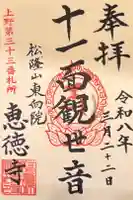 奉拝
令和八年
三月二十二日
十一面観世音
松隆山東向院
上野第三十三番札所
恵徳寺